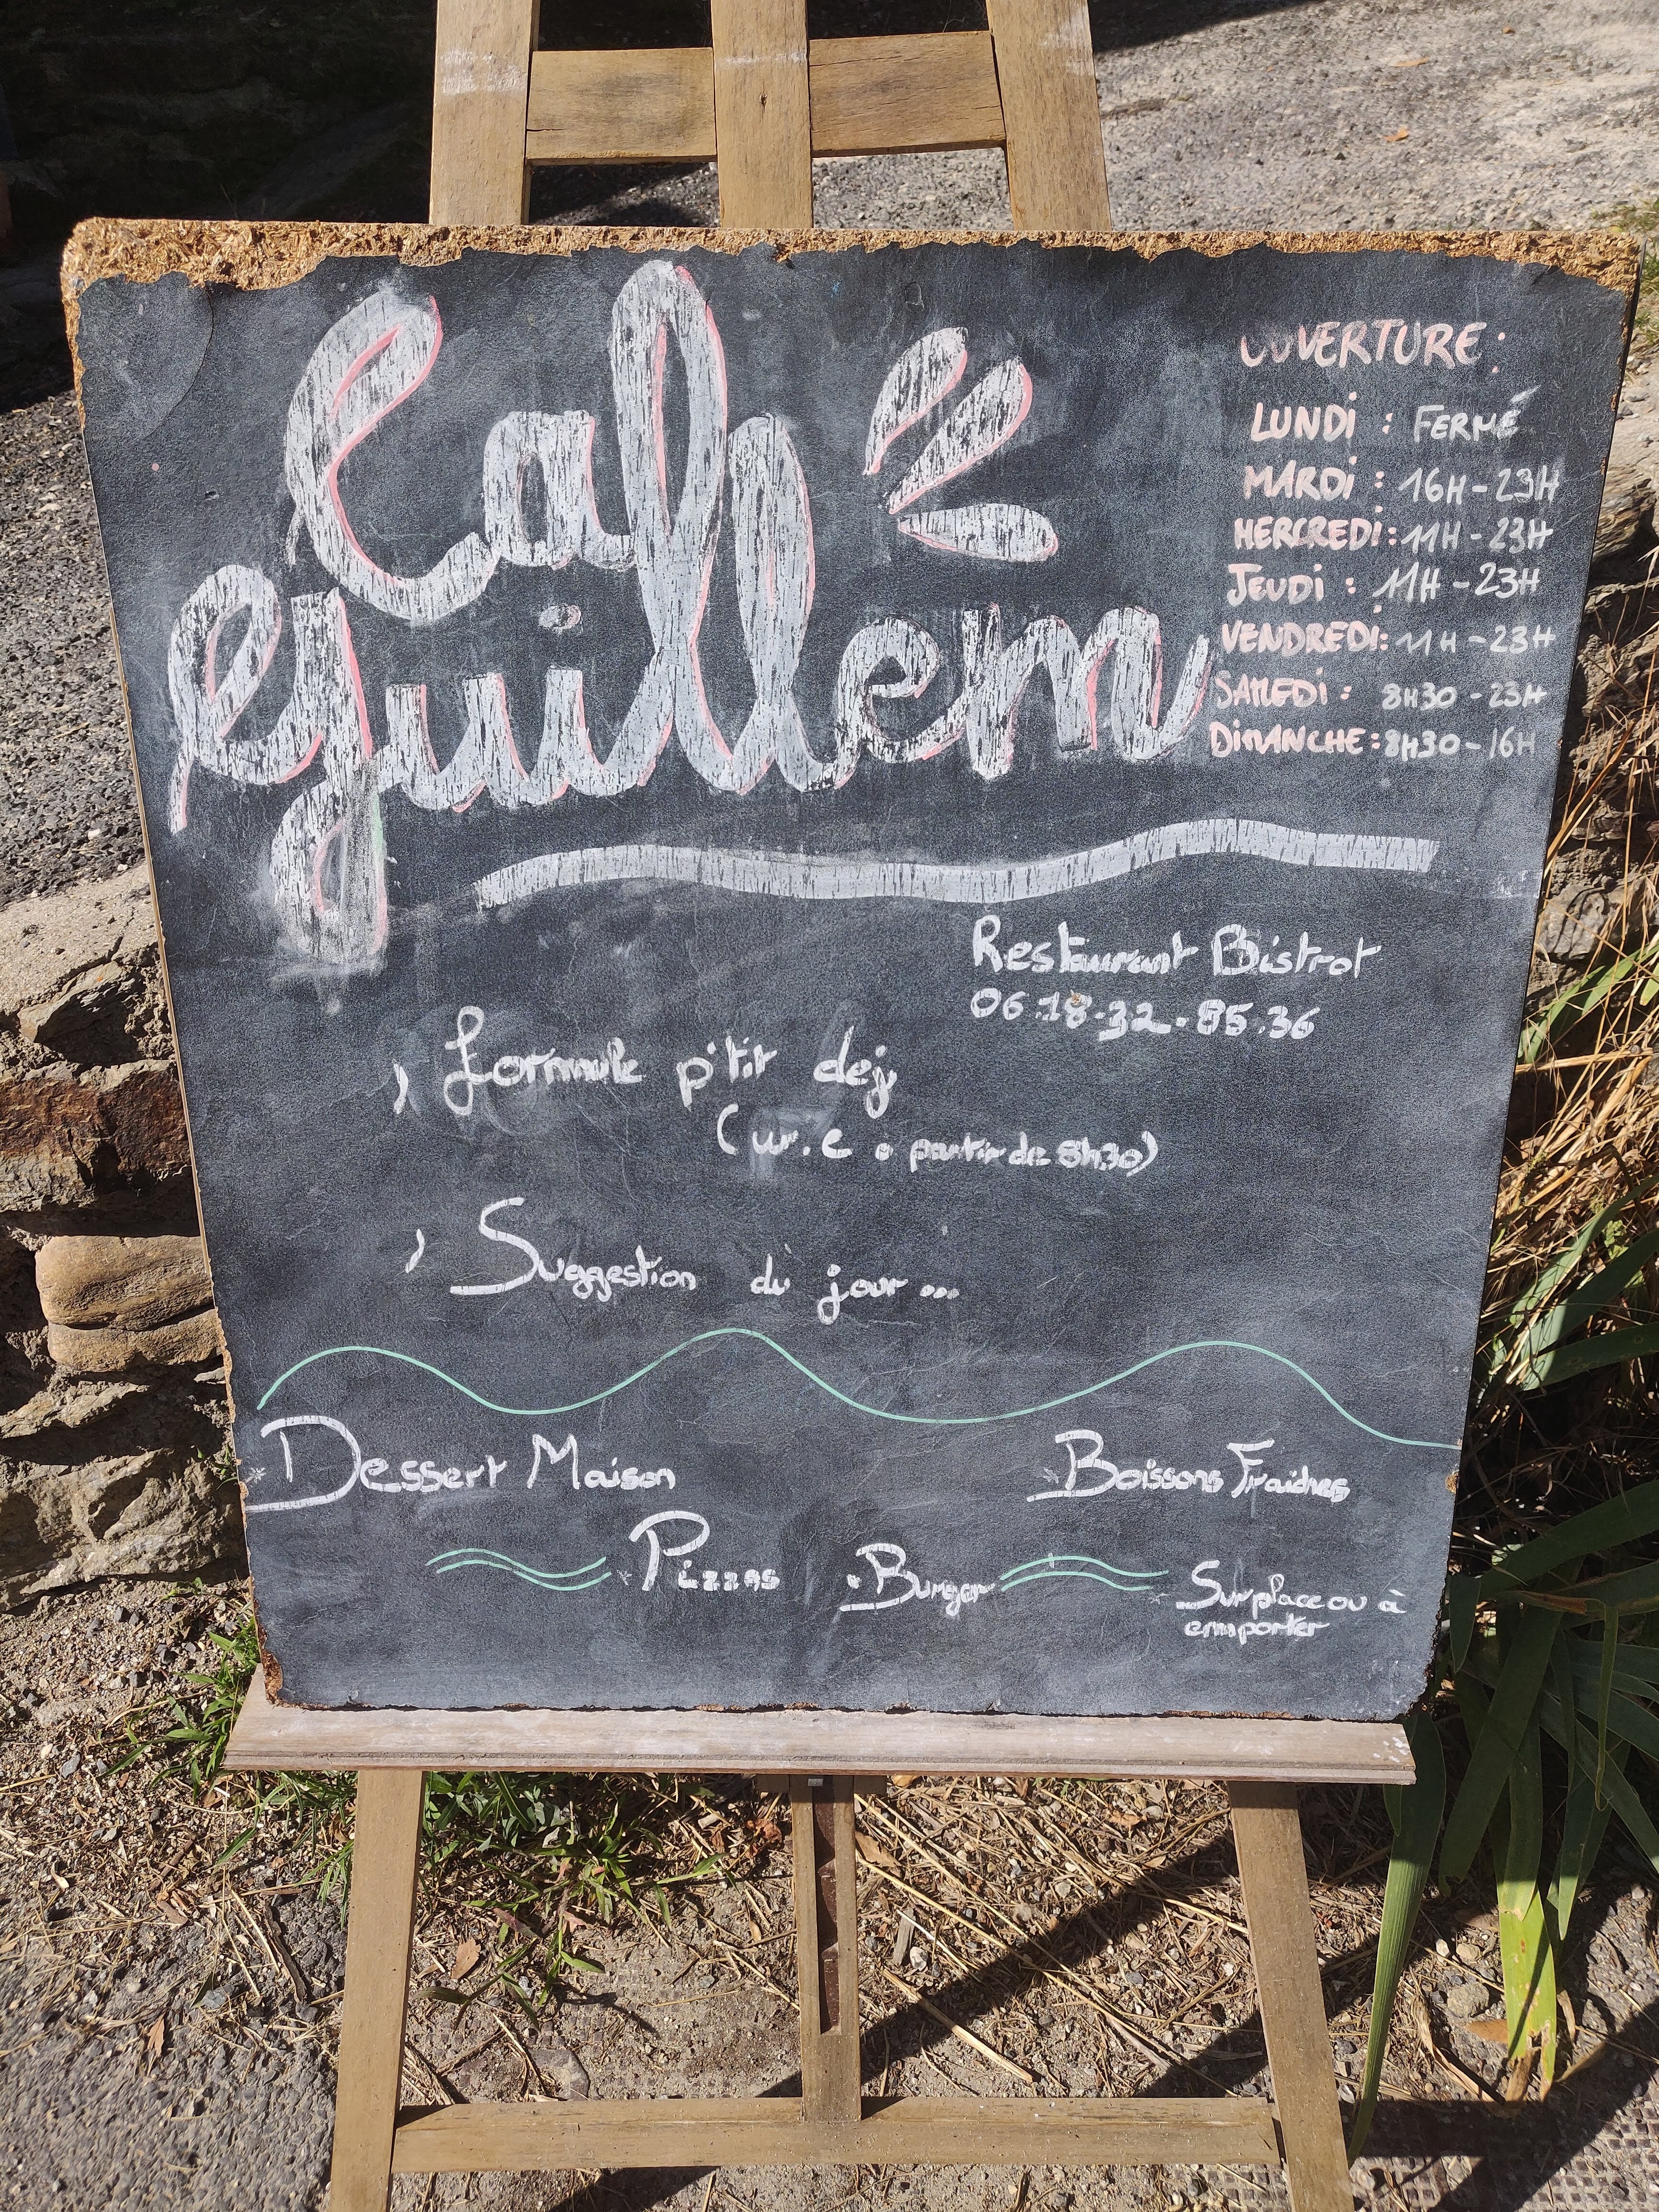 Cal
Guillem
OUVERTURE :
LUNDi : FERMÉ
MARDi : 16H - 23H
MERCREDi : 11H - 23H
JEUDi : 11H - 23H
VENDREDi : 11H - 23H
SAMEDi : 8H30 - 23H
DiMANCHE : 8H30 - 16H
Restaurant Bistrot
06.18.32.85.36
Formule p'tit dej
(w.e • partir de 8h30)
Suggestion du jour ...
Dessert Maison
Boissons Fraiches
Pizzas
Burger
Sur place ou à
emporter